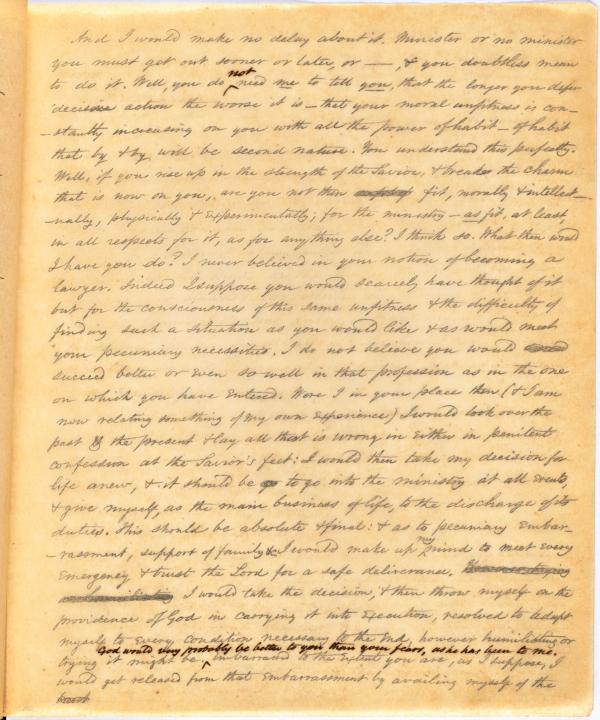 And I would make no delay about it. Minister or no minister
you must get out sooner or later, or —— , & you doubtless mean
not
to do it. Well, you do need me to tell you, that the longer you defer
decisive action the worse it is – that your moral unfitness is con-
-stantly increasing on you with all the power of habit – of habit
that by & by will be second nature. You understand this perfectly.
Well, if you rise up in the strength of the Savior, & break the charm
that is now on you, are you not then fit, morally & intellect-
-ually, physically & experimentally, for the ministry – as fit, at least,
in all respects for it, as for anything else? I think so. What then would
I have you do? I never believed in your notion of becoming a
lawyer. Indeed I suppose you would scarcely have thought of it
but for the consciousness of this same unfitness & the difficulty of
finding such a situation as you would like & as would meet
your pecuniary necessities. I do not believe you would
succeed better or even so well in that profession as in the one
on which you have entered. Were I in your place then (& I am
now relating something of my own experience) I would look over the
past & the present & lay all that is wrong in either in penitent
confession at the Savior's feet: I would then take my decision for
life anew, & it should be to go into the ministry at all events,
& give myself, as the main business of life, to the discharge of its
duties. This should be absolute & final: & as to pecuniary embar-
my
-rassment, support of family &c I would make up mind to meet every
emergency & trust the Lord for a safe deliverance.
I would take the decision, & then throw myself on the
providence of God in carrying it into execution, resolved to adapt
myself to every condition necessary to the end, however humiliating or
God would very probably be better to you than your fears, as he has been to me.
trying it might be. embarrassed to the extent you are, as I suppose, I
would get released from that embarrassment by availing myself of the